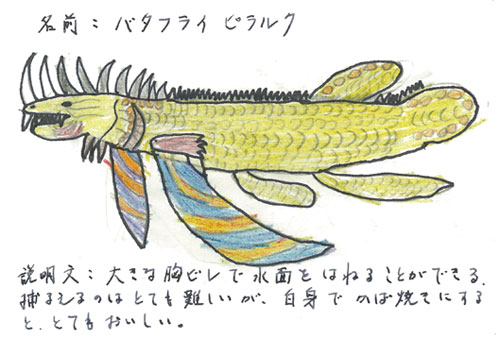 名前：バタフライピラルク
説明文：大きな胸ビレで水面をはねることができる.
捕まえるのはとても難しいが、白身で のば焼きにする
と、とてもおいしい。